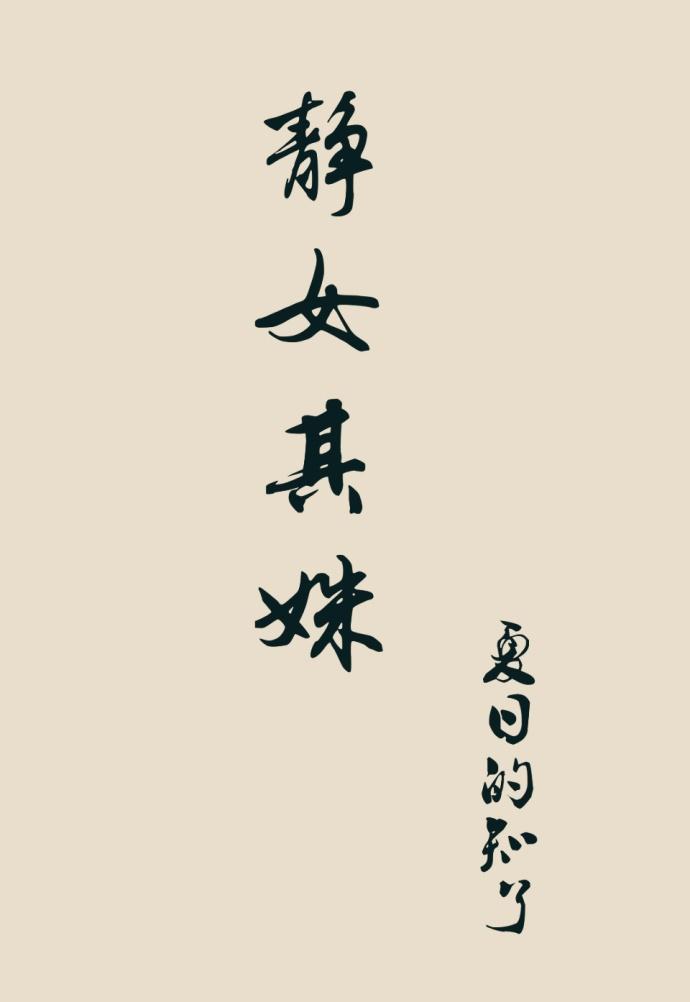 静女其姝
夏日的知了